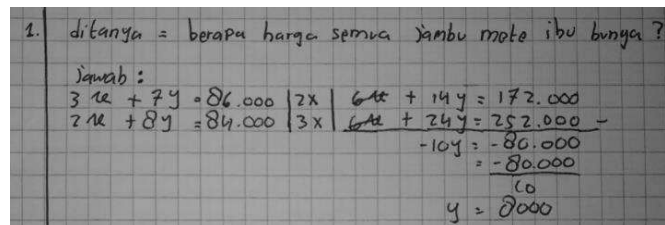 1. ditanya = berapa harga semua jambu mete ibu bunga ?
Jawab :
3x + 7y = 86.000 | 2x | 6x + 14y = 172.000
2x + 8y = 84.000 | 3x | 6x + 24y = 252.000 -
-10y = -80.000
= -80.000
10
y = 8000